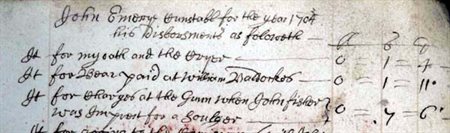 John Emery Cunstabl for the year 170¾
his Disborsments as foloweth —
£ s d
It for my oath and the Cryer — 0 = 1 = 4 -
It for Bear paid at William Baldockes — 0 = 1 = 11
It for Charges at the Gunn when John fisher
was Imprest for a Soulger — 0 = 7 = 6
It for